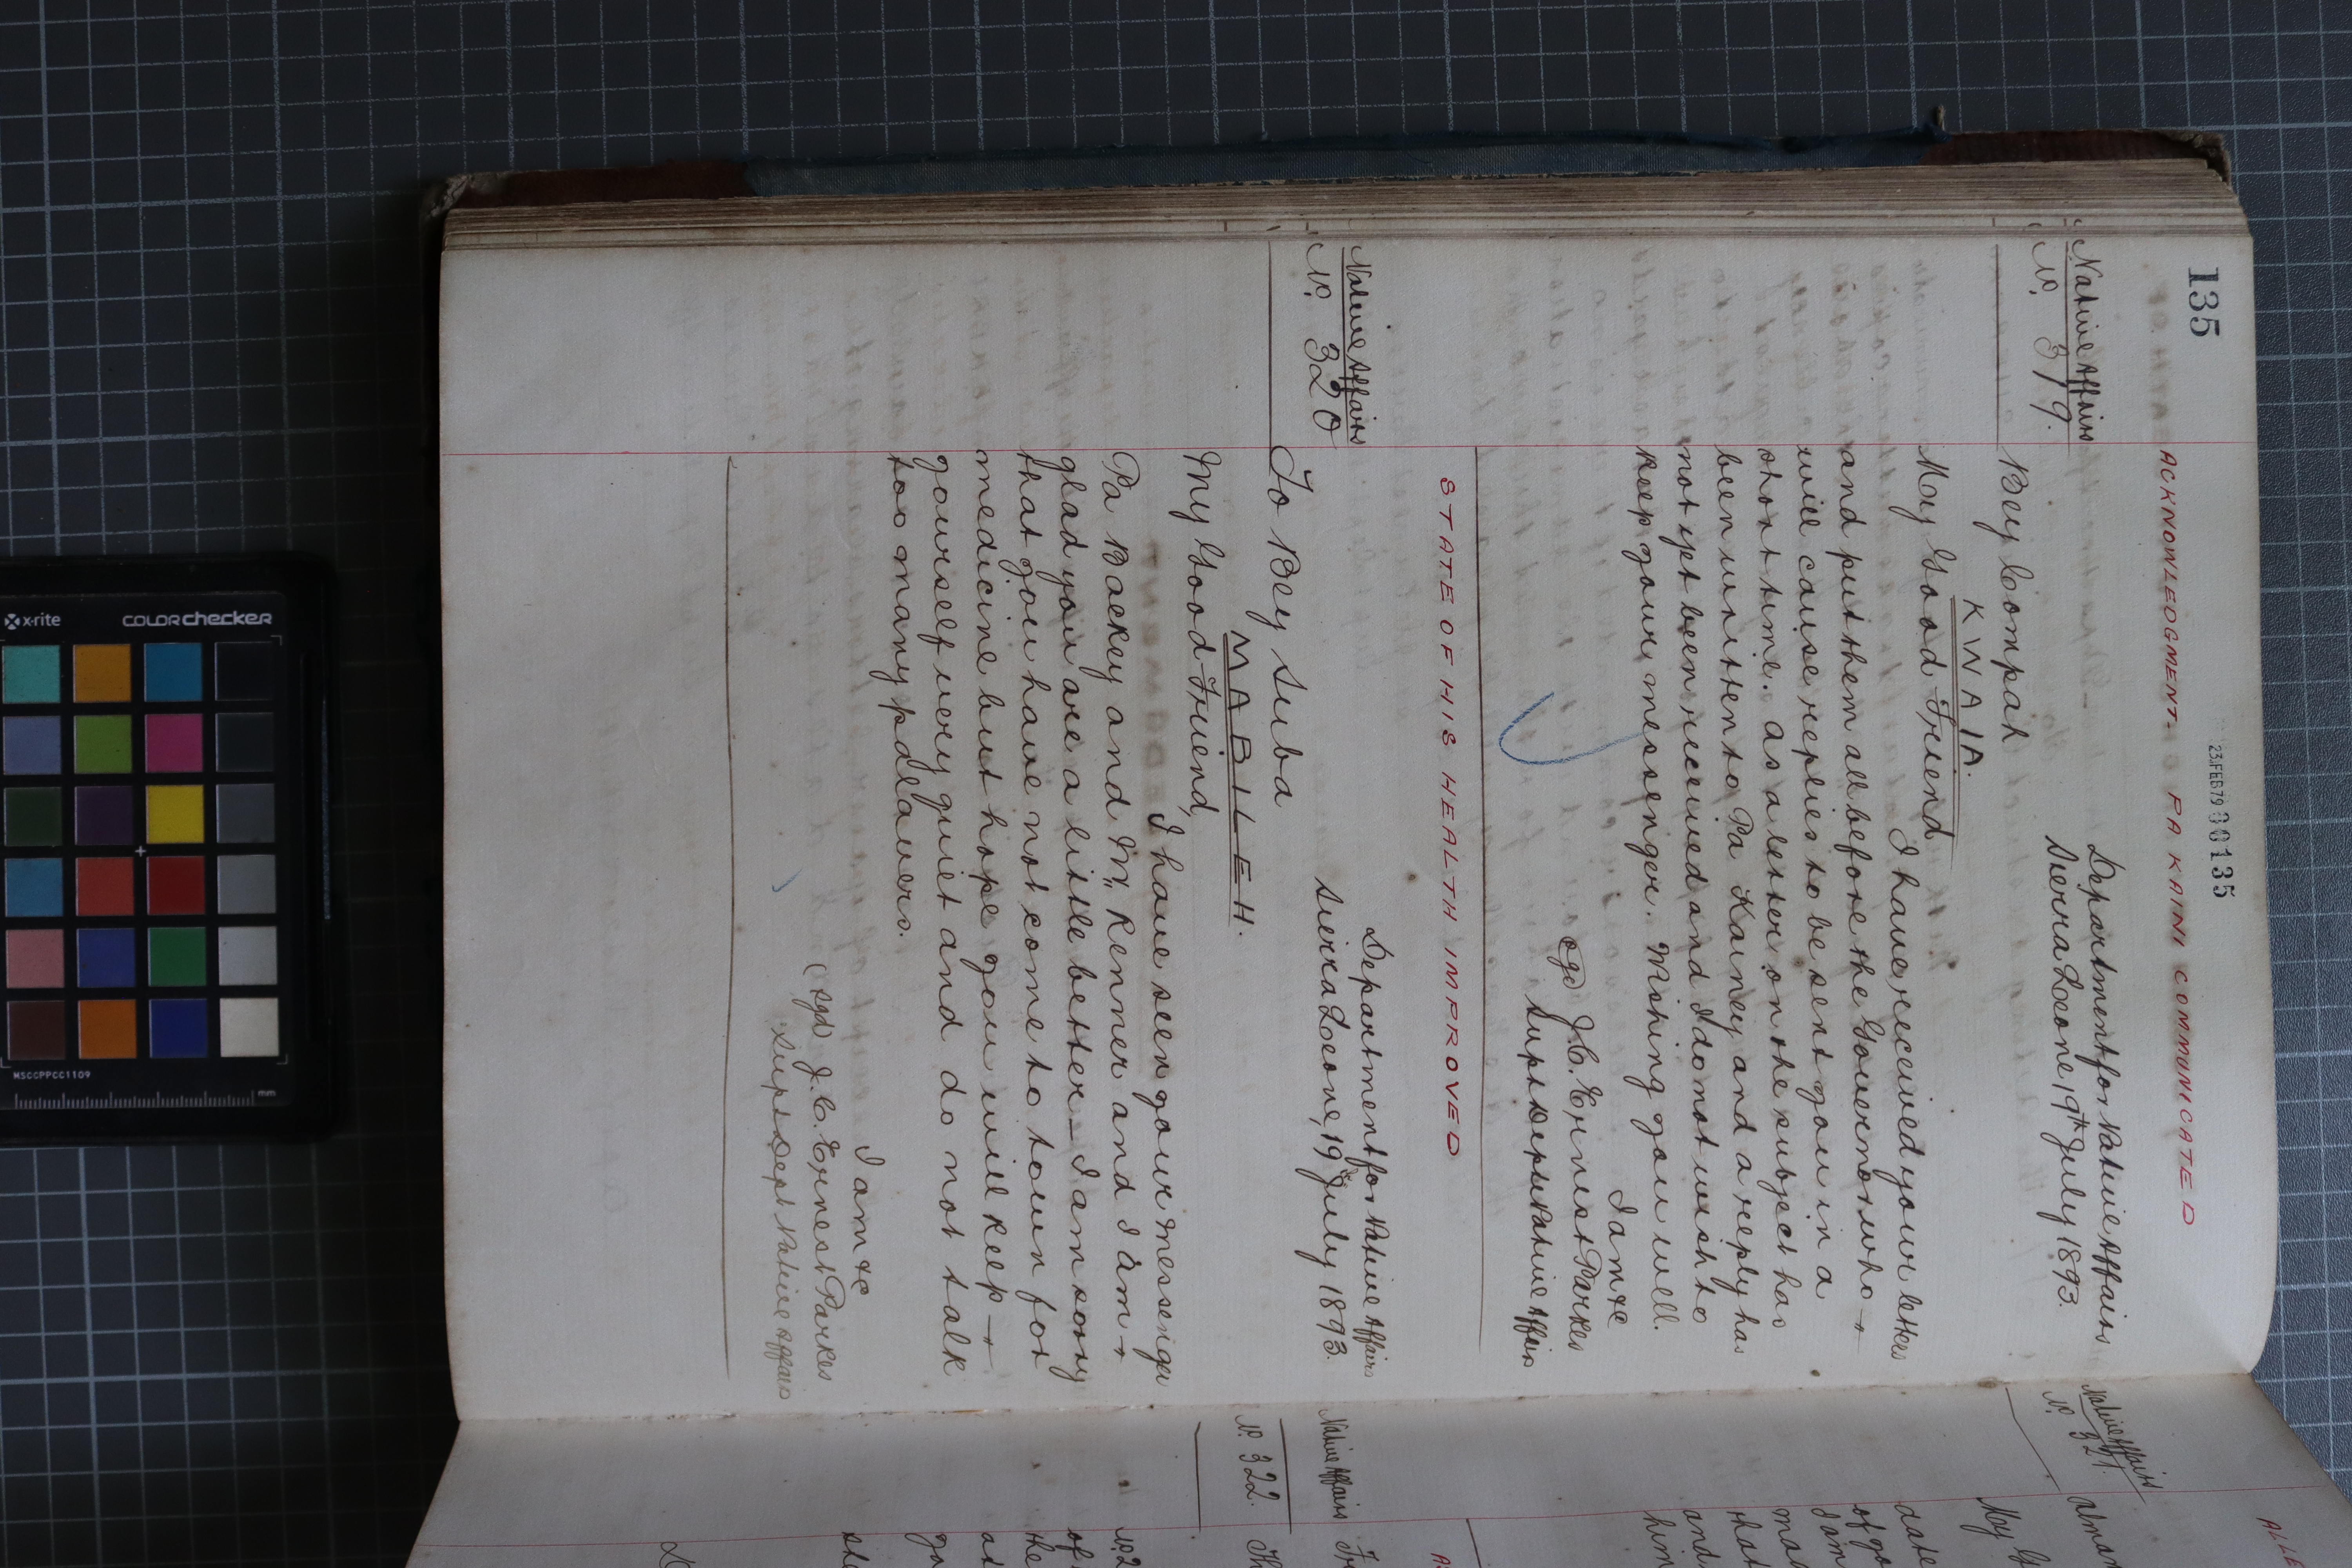 135
23.FEB79 00135
ACKNOWLEDGMENT. PA KAINI COMMUNICATED
Native Affairs
No. 319.
Department for Native Affairs
Sierra Leone, 19th July 1893.
Bey Compah
KWAIA.
My Good Friend
I have received your letter
and put them all before the Governor who
will cause replies to be sent you in a
short time. As a letter on the subject has
been written to Pa Kainey and a reply has
not yet been received and I do not wish to
keep your messenger. Wishing you well.
I am &c
sgd J.C. Ernest Parkes
Supt Dept Native Affairs
STATE OF HIS HEALTH IMPROVED
Native Affairs
No. 320
Department for Native Affairs
Sierra Leone, 19th July 1893.
To Bey Suba
MABILEH.
My Good Friend,
I have seen your messenger
Pa Backey and Mr. Renner and I am
glad you are a little better_ I am sorry
that you have not come to town for
medicine but hope you will keep
yourself very quiet and do not talk
too many palavers.
I am &c
(sgd) J.C. Ernest Parkes
Supt Dept Native Affairs
Native Affairs
No. 321.
My G
date
of yo
I am
that
and
him
Native Affairs
No. 322.
of
the
at
x-rite
colorchecker
MSCCPPCC1109
mm